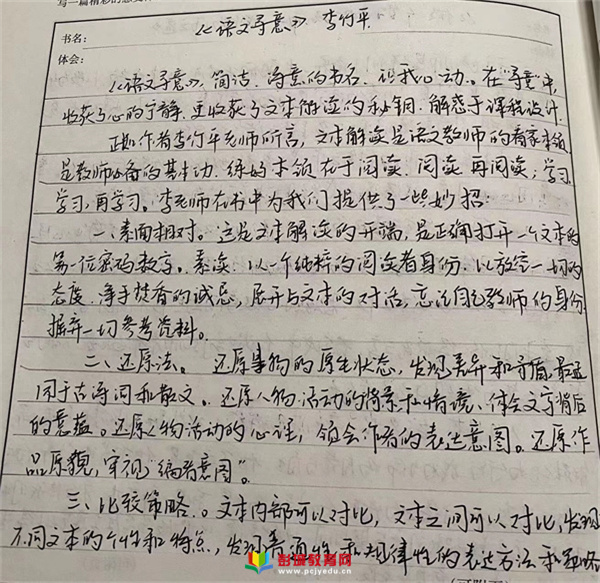 写一篇精彩的
书名：《语文寻意》李竹平
体会：
《语文寻意》，简洁、诗意的书名，让我心动。在“寻意”中，
收获了心的宁静，更收获了文本解读的秘钥，解惑于课程设计。
正如作者李竹平老师所言，文本解读是语文教师的看家本领
是教师必备的基本功，练好本领在于阅读、阅读、再阅读；学习、
学习、再学习。李老师在书中为我们提供了一些妙招：
一、素面相对。这是文本解读的开端，是正确打开一个文本的
第一位密码数字。素读：以一个纯粹的阅读者身份，以放空一切的
态度，净手焚香的诚恳，展开与文本的对话，忘记自己教师的身份
摒弃一切参考资料。
二、还原法。还原事物的原生状态，发现差异和矛盾，最适
用于古诗词和散文。还原人物活动的背景和情境、体会文字背后
的意蕴。还原人物活动的心理，领会作者的表达意图。还原作
品原貌，审视“编者意图”。
三、比较策略。文本内部可以对比，文本之间可以对比，发现
不同文本的个性和特点，发现普遍性和规律性的表达方法和思路
时瑞教育网
www.pcjyedu.cn